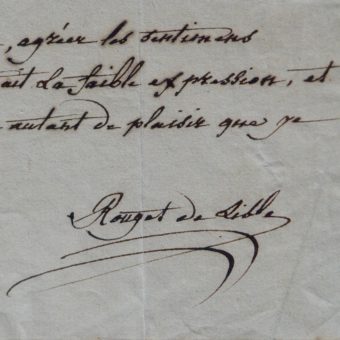 , agréer les sentimens
ait la faible expression, et
autant de plaisir que je
Rouget de Lisle